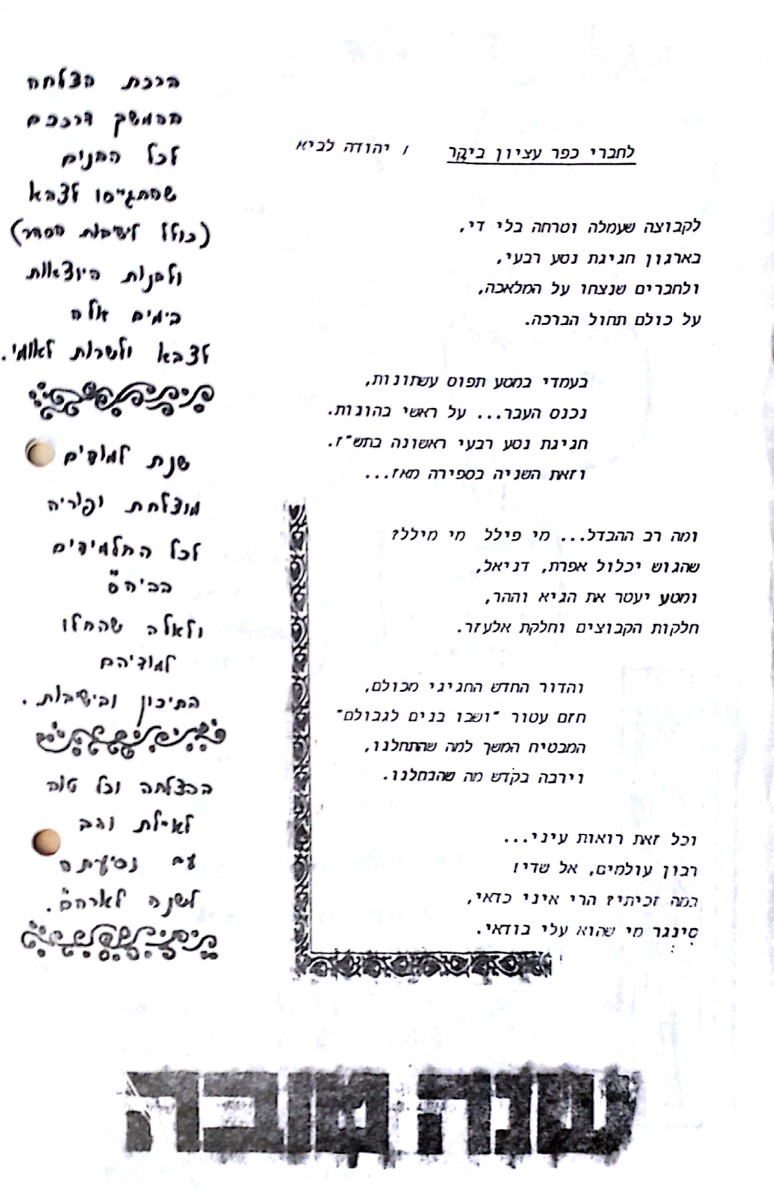 לחברי כפר עציון ביקר / יהודה לביא
לקבוצה שעמלה וטרחה בלי די,
בארגון חגיגת נטע רבעי,
ולחברים שנצחו על המלאכה,
על כולם תחול הברכה.
בעמדי במטע תפוס עשתונות,
נכנס העבר... על ראשי בהונות.
חגיגת נטע רבעי ראשונה בתש"ז.
וזאת השניה בספירה מאז...
ומה רב ההבדל... מי פילל מי מילל?
שהגוש יכלול אפרת, דניאל,
ומטע יעטר את הגיא וההר,
חלקות הקבוצים וחלקת אלעזר.
והדור החדש החגיגי מכולם,
חזם עטור "ושבו בנים לגבולם"
המבטיח המשך למה שהתחלנו,
וירבה בקדש מה שהנחלנו.
וכל זאת רואות עיני...
רבון עולמים, אל שדי!
במה זכיתי? הרי איני כדאי,
סינגר מי שהוא עלי בודאי.
ברכת הצלחה
בהמשך דרככם
לכל הבנים
שהתגייסו לצבא
(כולל לישיבות הסדר)
ולבנות היוצאות
בימים אלה
לצבא ולשרות לאומי.
שנת למודים
מוצלחת ופוריה
לכל התלמידים
בביה"ס
ולאלה שהחלו
למודיהם
התיכון ובישיבות.
בהצלחה וכל טוב
לאילת והב
עם נסיעתה
לשנה לארה"ב.
שנה טובה